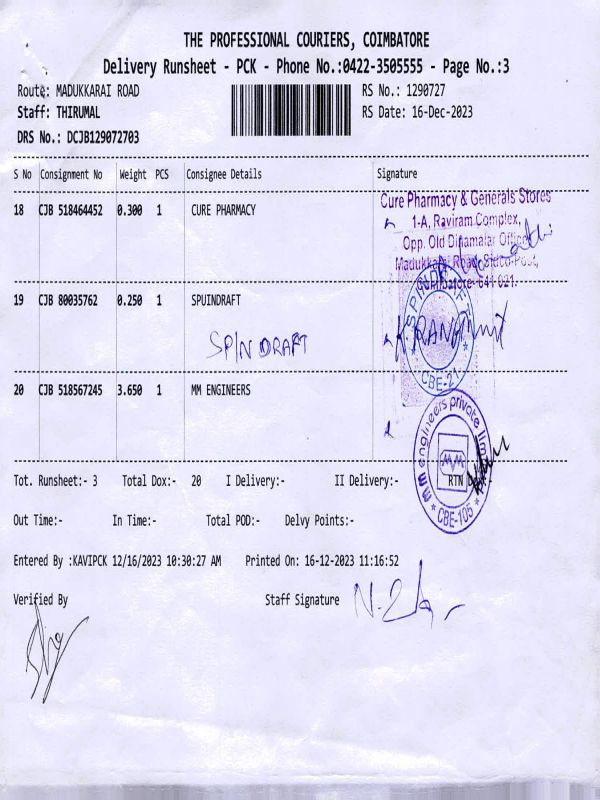 THE PROFESSIONAL COURIERS, COIMBATORE
Delivery Runsheet - PCK - Phone No.:0422-3505555 - Page No.:3
Route: MADUKKARAI ROAD RS No.: 1290727
Staff: THIRUMAL RS Date: 16-Dec-2023
DRS No.: DCJB129072703
S No Consignment No Weight PCS Consignee Details Signature
18 CJB 518464452 0.300 1 CURE PHARMACY
Cure Pharmacy & Generals Stores
1-A, Raviram Complex,
Opp. Old Dinamalar Office
Madukkarai Road, Sidco Post,
Coimbatore- 641 021.
19 CJB 80035762 0.250 1 SPUINDRAFT
SPIN DRAFT
SPINDRAFT
CBE-21
20 CJB 518567245 3.650 1 MM ENGINEERS
mm engineers private limited
CBE-105
Tot. Runsheet:- 3 Total Dox:- 20 I Delivery:- II Delivery:- RTN
Out Time:- In Time:- Total POD:- Delvy Points:-
Entered By :KAVIPCK 12/16/2023 10:30:27 AM Printed On: 16-12-2023 11:16:52
Verified By Staff Signature